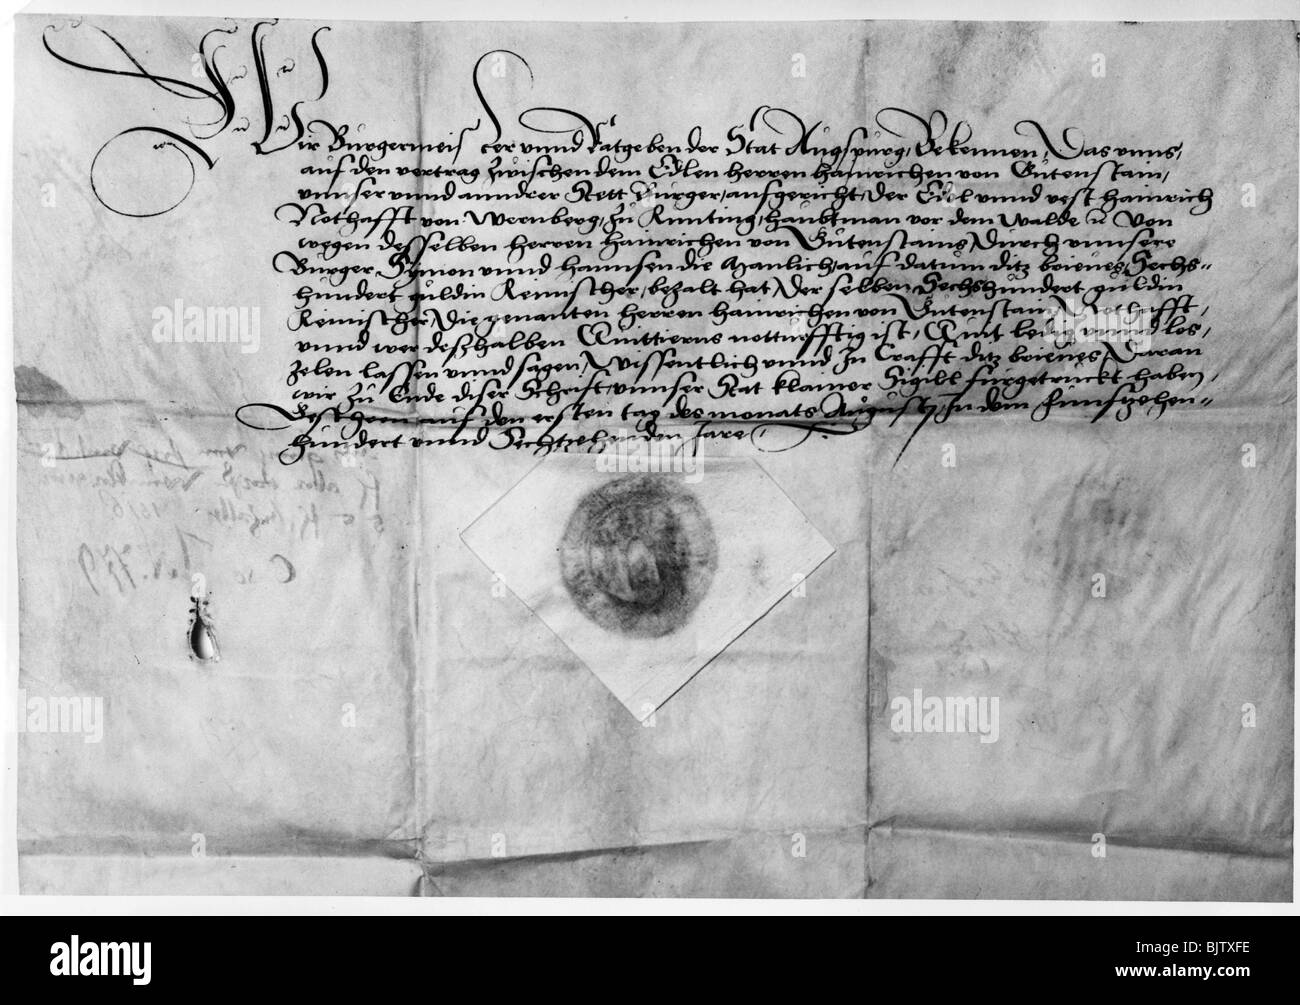 Wir Burgermeister vnnd Ratgeben der Stat Augspurg, Bekennen, Das vnns,
auf den vertrag zwischen dem Edlen herren hainrichen von Gutenstain,
vnnser vnnd anndrer Stett Burger, ausgericht, der Edel vnnd vest hainrich
Nothafft von Wernberg, zu Runting, haubtman vor dem Walde von
wegen desselben herren hainrichen von Gutenstains, Durch vnnsere
Burger, Symon vnnd hannsen die Manlich, auf datum ditz brieues, Sechs-
hundert guldin Reinischer, bezalt hat, Der selben Sechshundert guldin
Reinischer, Die genanten herren hainrichen von Gutenstain, Nothafft,
vnnd wer deßhalben Quittierns notturfftig ist, Quit ledig vnnd los,
zelen lassen vnnd sagen, Wissentlich vnnd In Crafft ditz brieues, Daran
wir zu Ende diser Schrift, vnnser Stat klainer Sigill furgetruckt haben,
Geschehen auf den ersten tag des monats Augusti, In dem Funfzehen-
hundert vnnd Sechtzehinden Jare
1516
alamy
a
BJTXFE
www.alamy.com